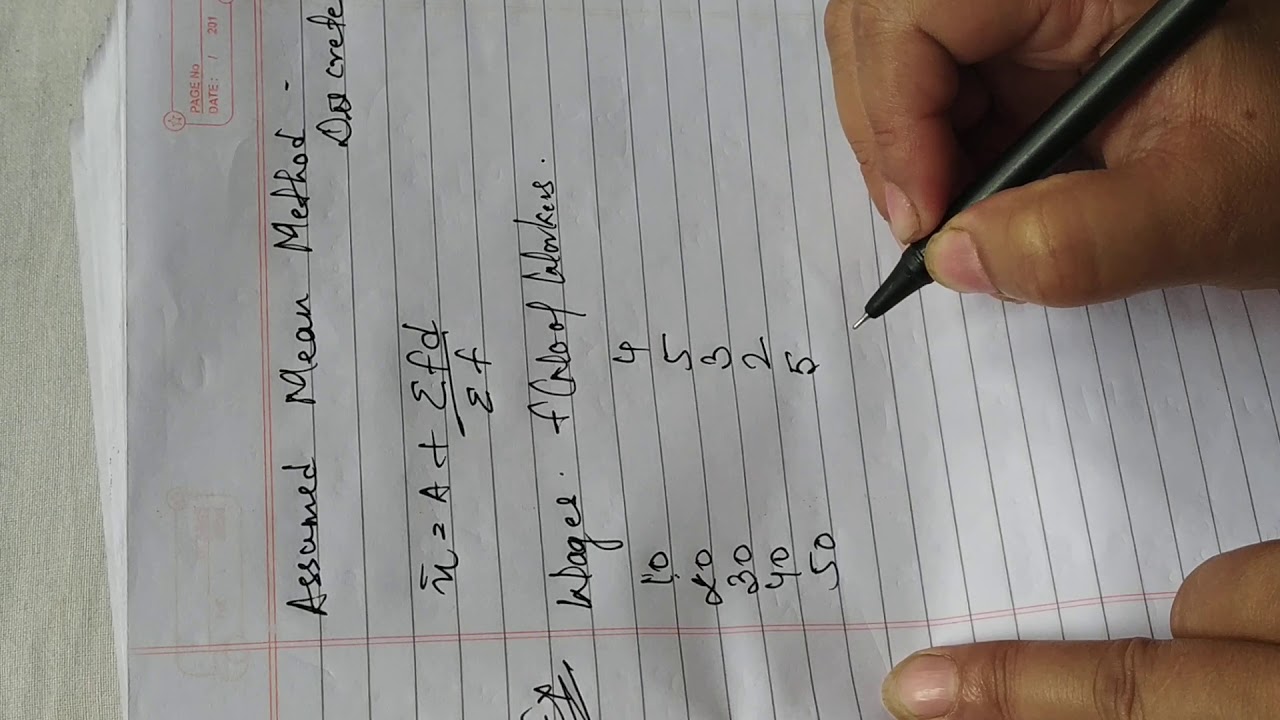 PAGE No
DATE: / 201
Assumed Mean Method -
Discrete
x̄ = A + Σfd
Σf
Wages. f(No of Workers.
10 4
20 5
30 3
40 2
50 5